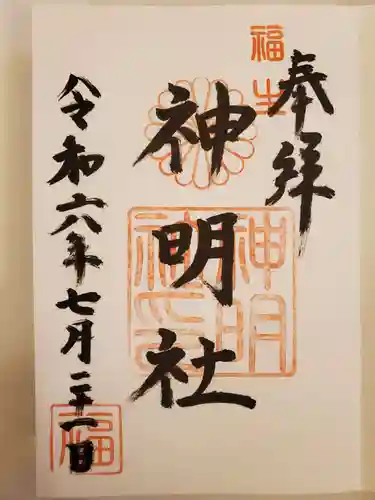 奉拜
福生
神明社
神明社印
令和六年七月二十一日
福